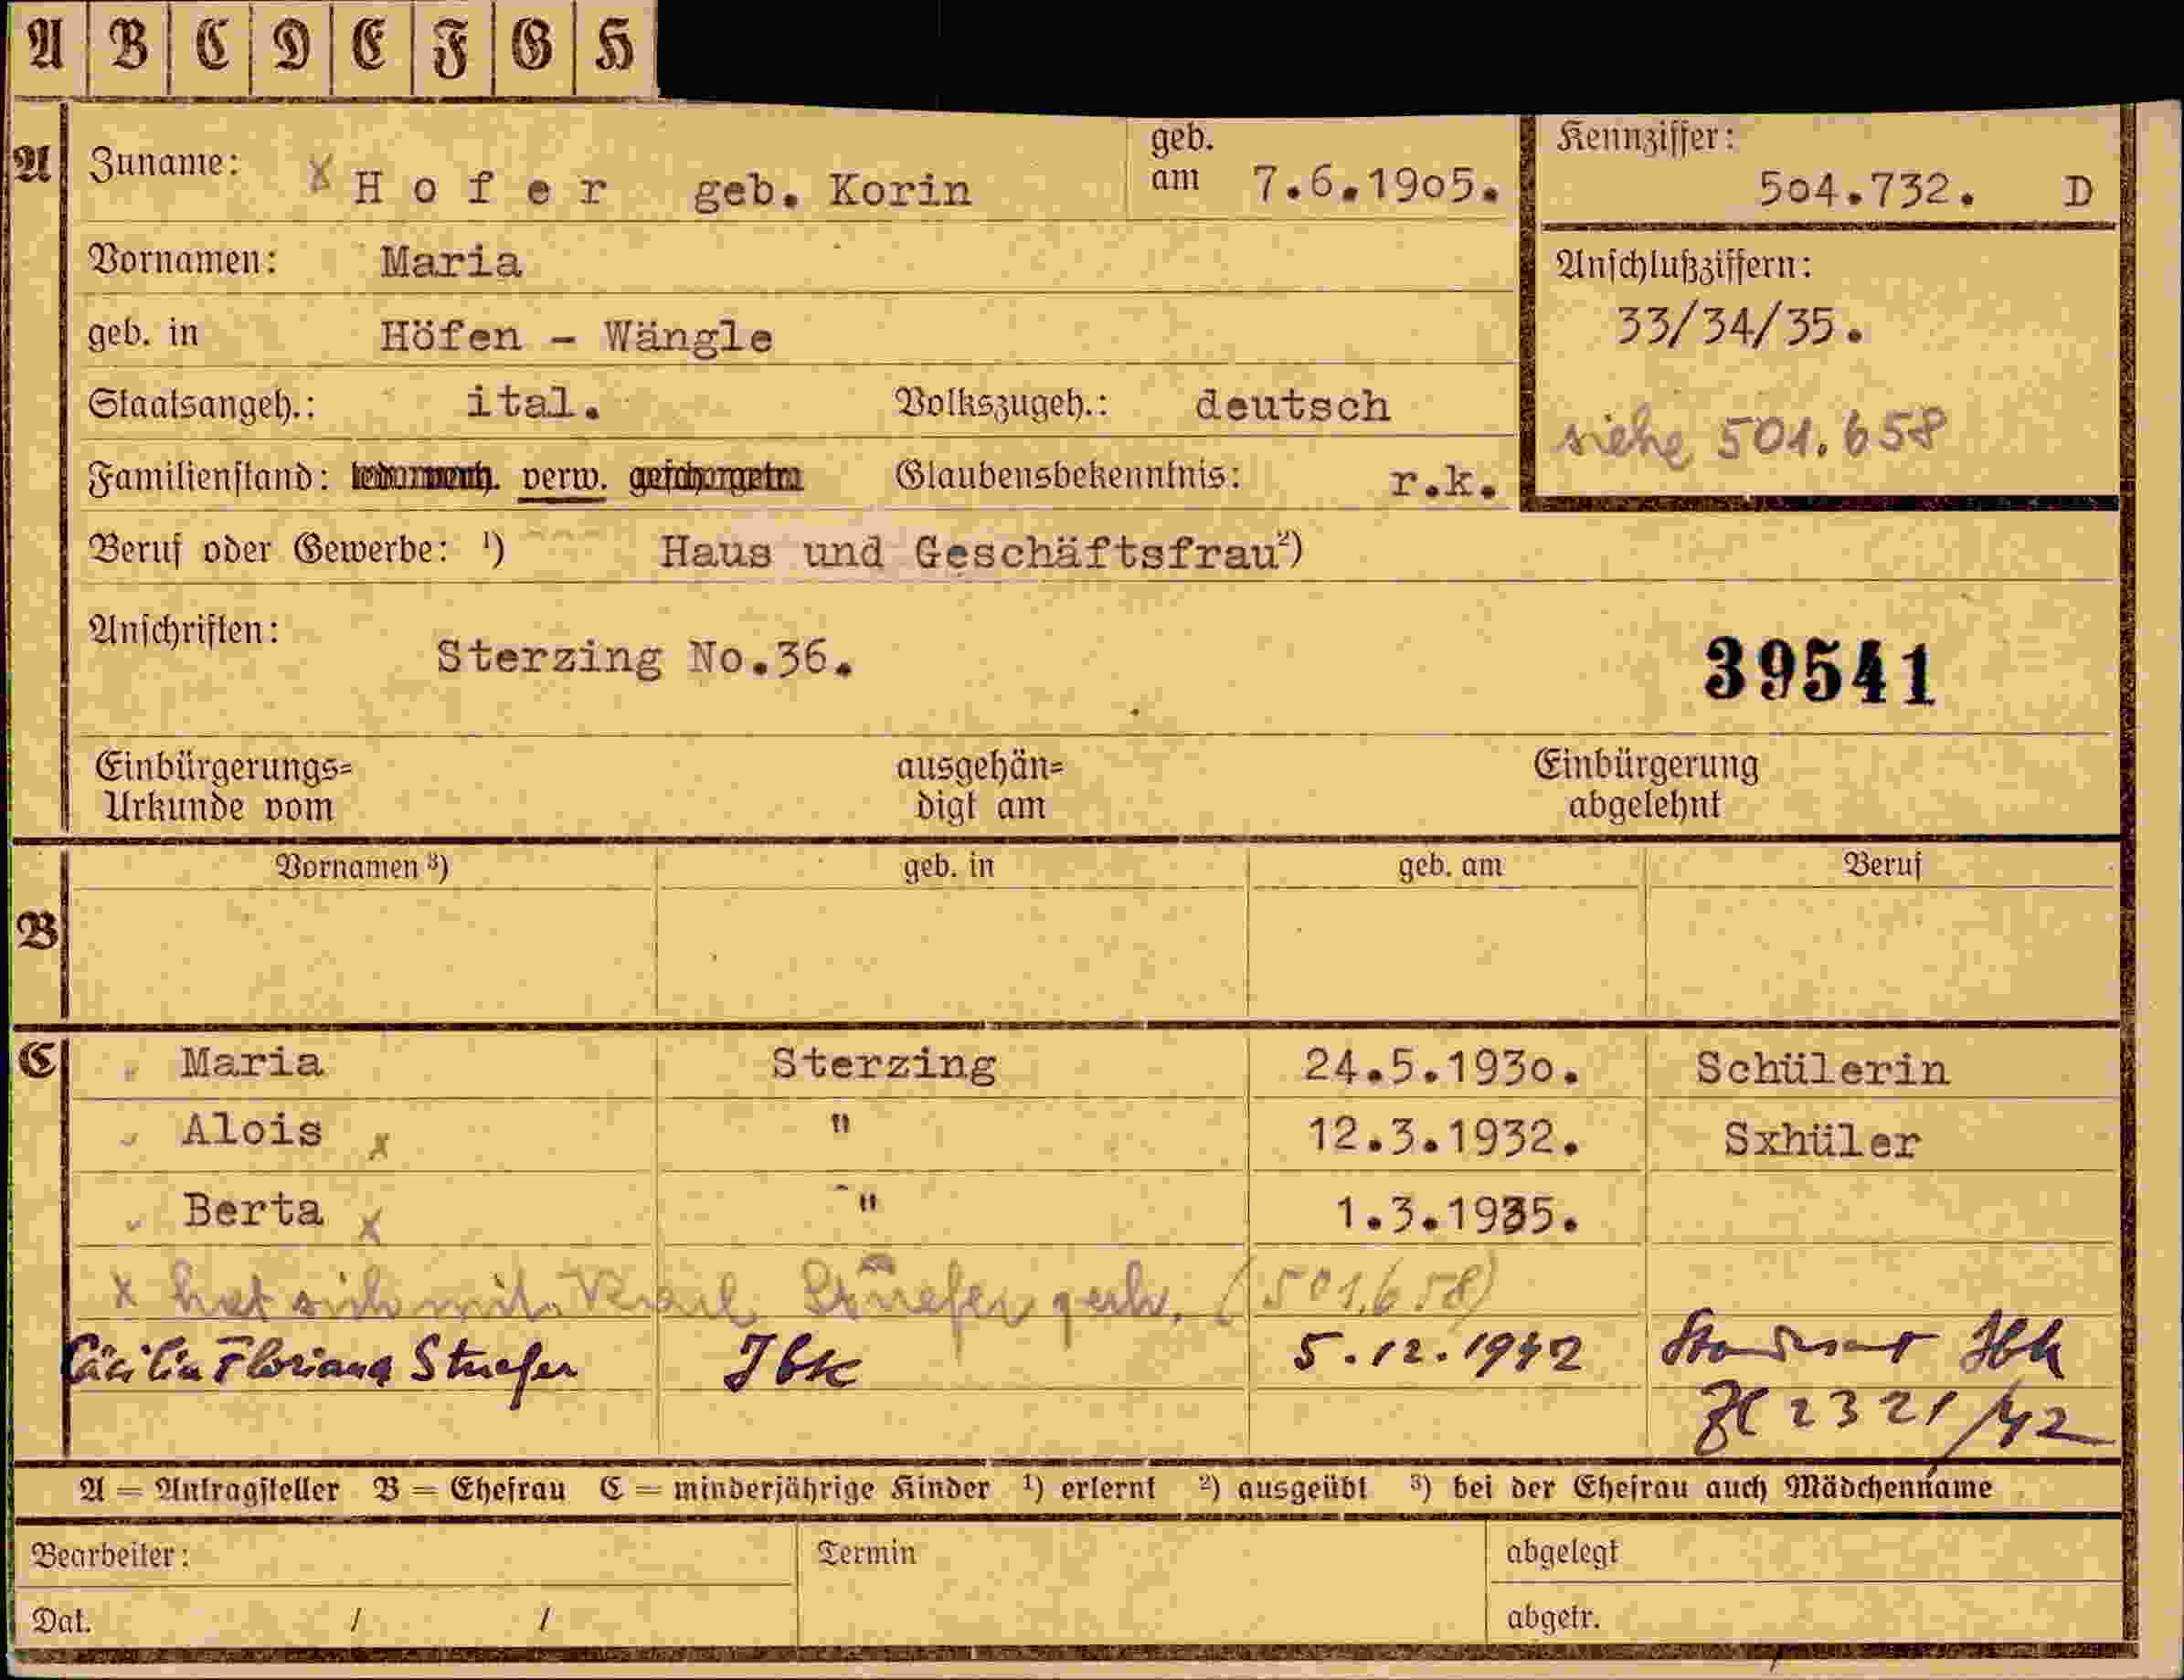 A B C D E F G H
A Zuname: x Hofer geb. Korin geb. am 7.6.1905. Kennziffer: 504.732. D
Vornamen: Maria
Anschlußziffern:
geb. in Höfen - Wängle 33/34/35.
Staatsangeh.: ital. Volkszugeh.: deutsch
siehe 501.658
Familienstand: verw. Glaubensbekenntnis: r.k.
Beruf oder Gewerbe: ¹) Haus und Geschäftsfrau²)
Anschriften: Sterzing No.36. 39541
Einbürgerungs= ausgehän= Einbürgerung
Urkunde vom digt am abgelehnt
Vornamen ³) geb. in geb. am Beruf
B
C Maria Sterzing 24.5.1930. Schülerin
Alois x " 12.3.1932. Sxhüler
Berta x " 1.3.1935.
x hat sich mit Karl Stuefer (501.658)
Cäcilia Floriana Stuefer Ibk 5.12.1942 Ibk
2321/42
A = Antragsteller B = Ehefrau C = minderjährige Kinder ¹) erlernt ²) ausgeübt ³) bei der Ehefrau auch Mädchenname
Bearbeiter: Termin abgelegt
Dat. / / abgetr.